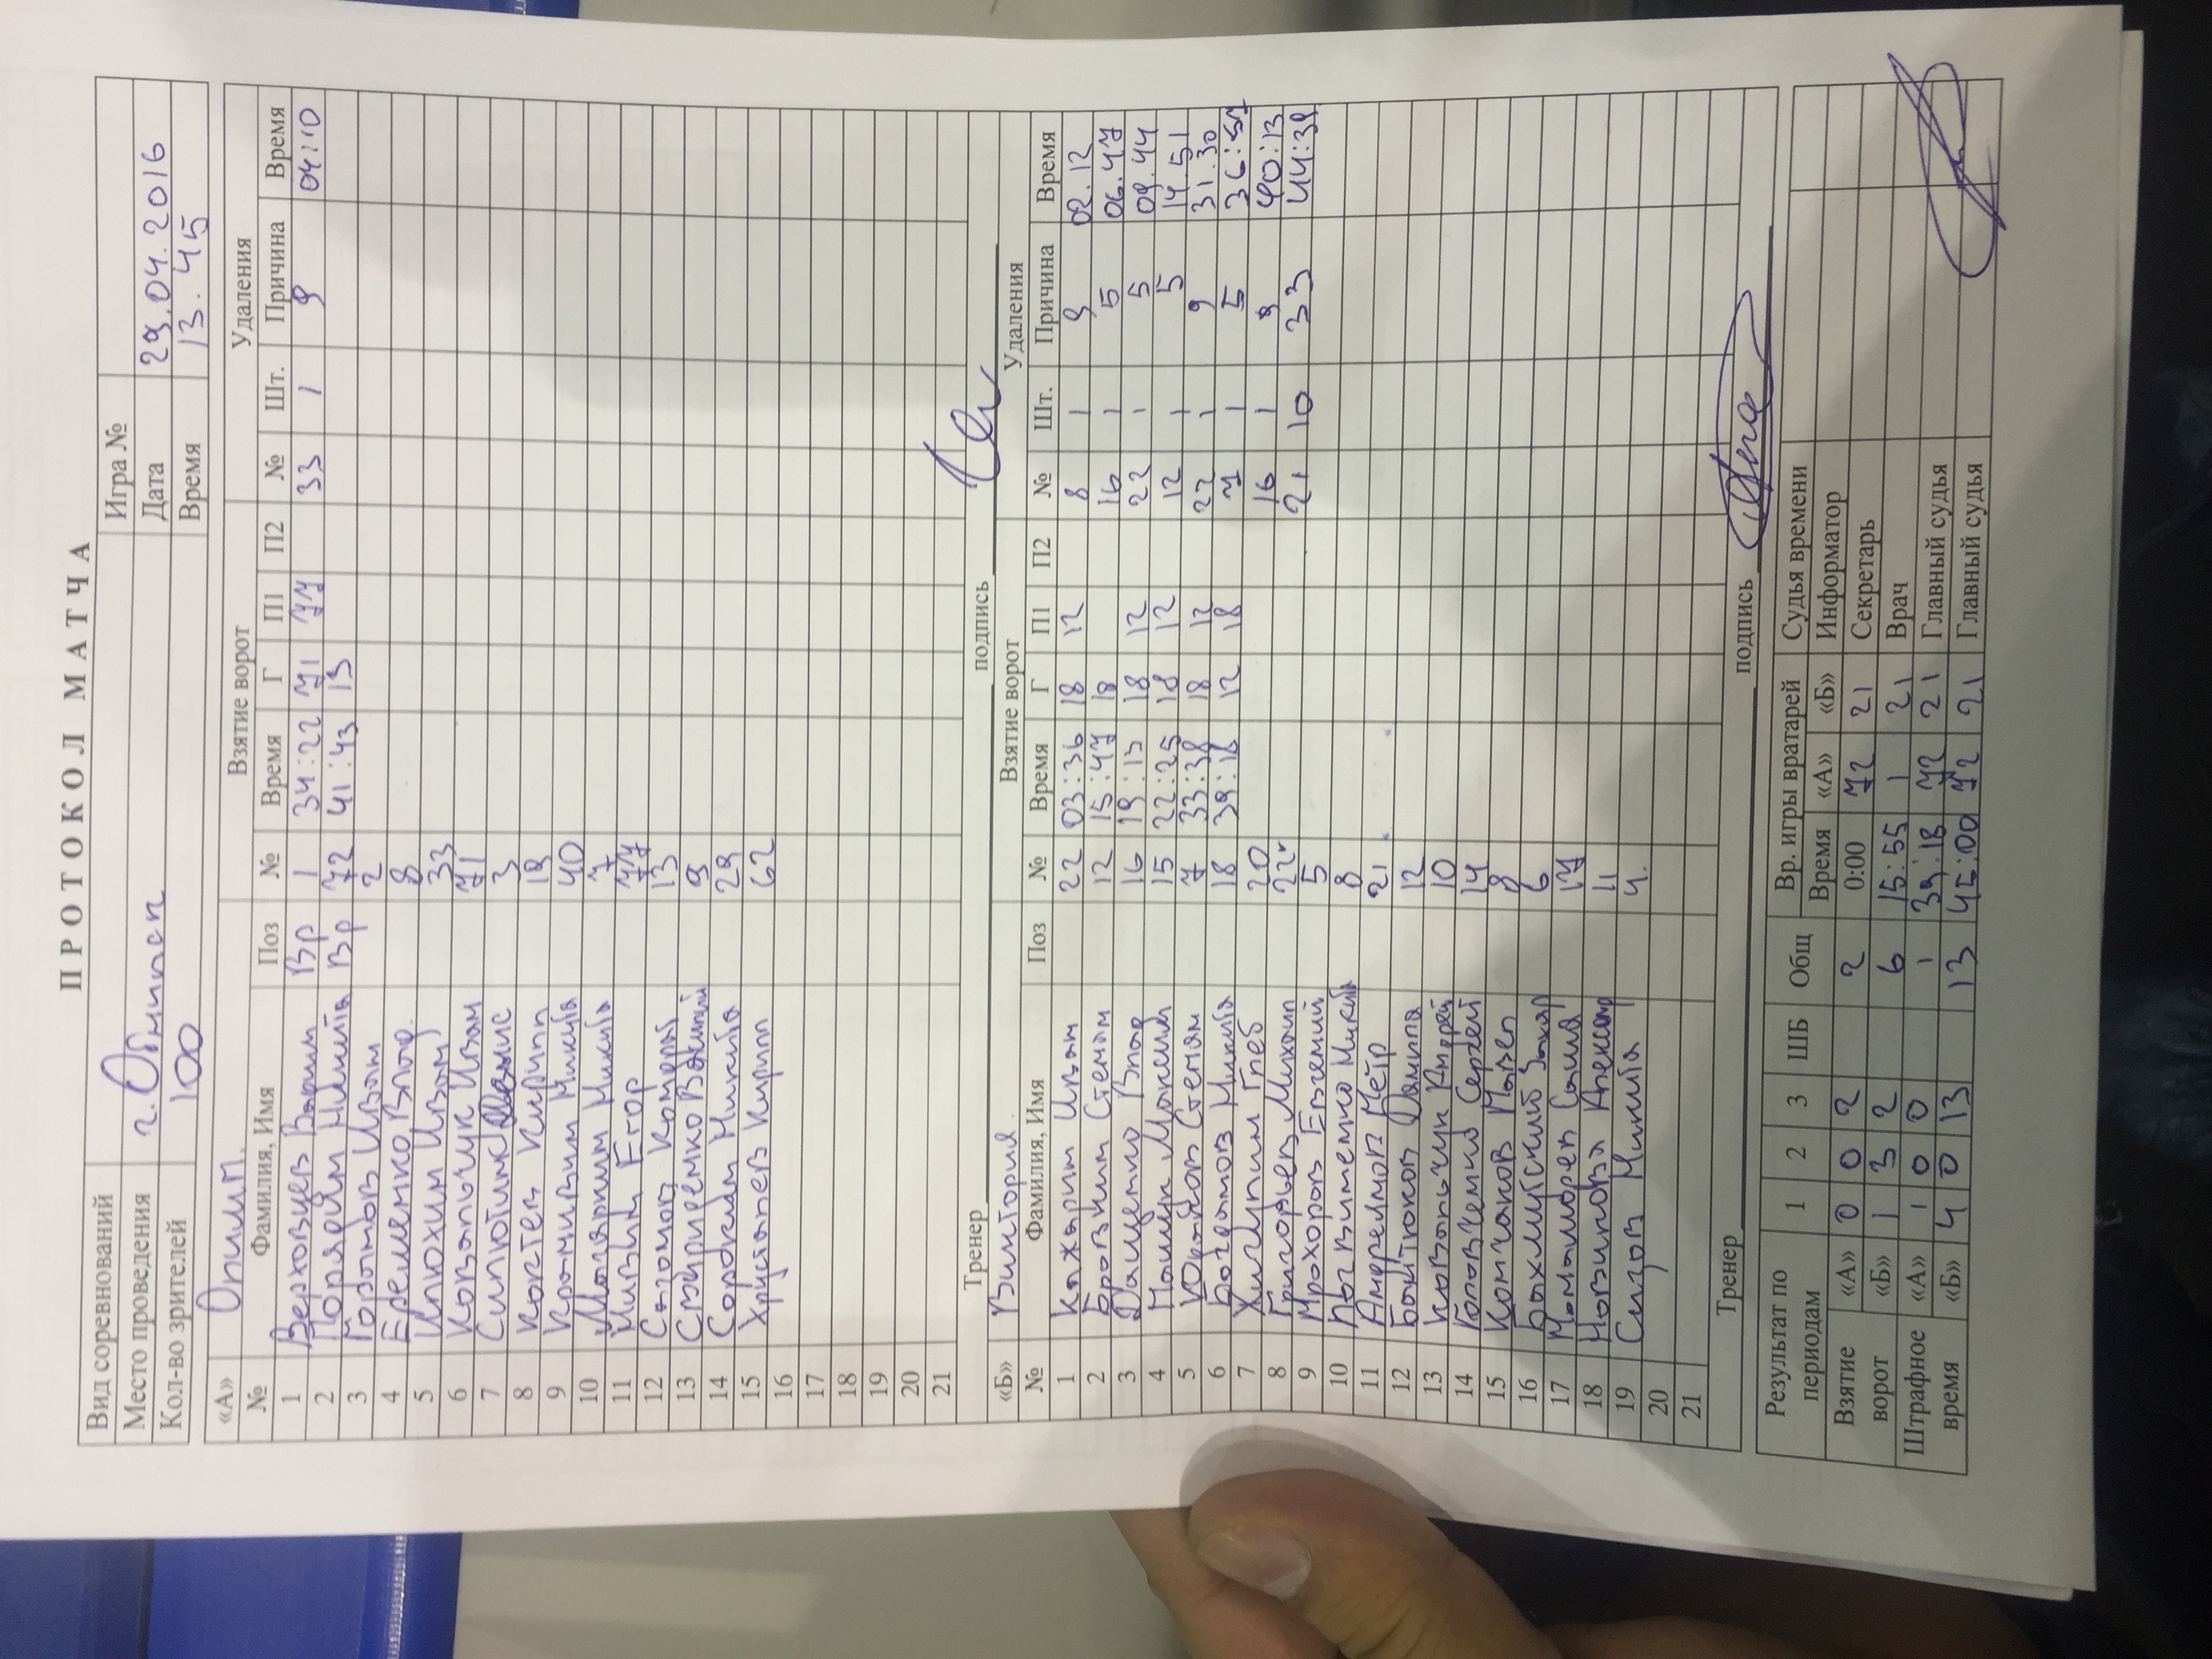 ПРОТОКОЛ МАТЧА
Вид соревнований Игра №
Место проведения г. Обнинск Дата 29.04.2016
Кол-во зрителей 100 Время 13.45
«А» Олимп. Взятие ворот Удаления
№ Фамилия, Имя Поз № Время Г П1 П2 № Шт. Причина Время
1 Верховцев Вадим Вр 1 34:22 71 77 33 1 9 04:10
2 Порядин Никита Вр 72 41:43 13
3 Горбунов Иван 2
4 Еременко Влад. 8
5 Илюхин Иван 33
6 Ковальчук Иван 71
7 Силютин Денис 3
8 Коктев Кирилл 19
9 Никита 40
10 Мазарини Никита 7
11 Кивин Егор 77
12 13
13 9
14 Сорокин Никита 29
15 Хрусталев Кирилл 62
16
17
18
19
20
21
Тренер подпись
«Б» Виктория. Взятие ворот Удаления
№ Фамилия, Имя Поз № Время Г П1 П2 № Шт. Причина Время
1 Кажарин Иван 22 03:36 18 12 8 1 9 02.12
2 Бровкин Степан 12 15:47 18 16 1 5 06.47
3 Даценко Влад 16 19:13 18 12 22 1 5 09.44
4 Мащук Максим 15 22:25 18 12 12 1 5 14.51
5 Коробков Степан 7 33:38 18 12 22 1 9 31.30
6 Богданов Никита 18 39:18 12 18 7 1 5 36:57
7 Жигулин Глеб 20 16 1 9 40:13
8 Григорьев Михаил 22 21 10 33 44:39
9 Прохоров Евгений 5
10 Логвиненко Никита 8
11 Андреянов Пётр 21
12 Байтюков Данила 12
13 Ковальчук Андрей 10
14 Головченко Сергей 14
15 Кончаков Павел 8
16 Бахмутский Захар 6
17 17
18 Новикова 11
19 Сизов Никита 4.
20
21
Тренер подпись
Результат по периодам 1 2 3 ШБ Общ Вр. игры вратарей Судья времени
Время «А» «Б» Информатор
Взятие ворот «А» 0 0 2 2 0:00 72 21 Секретарь
«Б» 1 3 2 6 15:55 1 21 Врач
Штрафное время «А» 1 0 0 1 39:18 72 21 Главный судья
«Б» 4 0 13 13 45:00 72 21 Главный судья